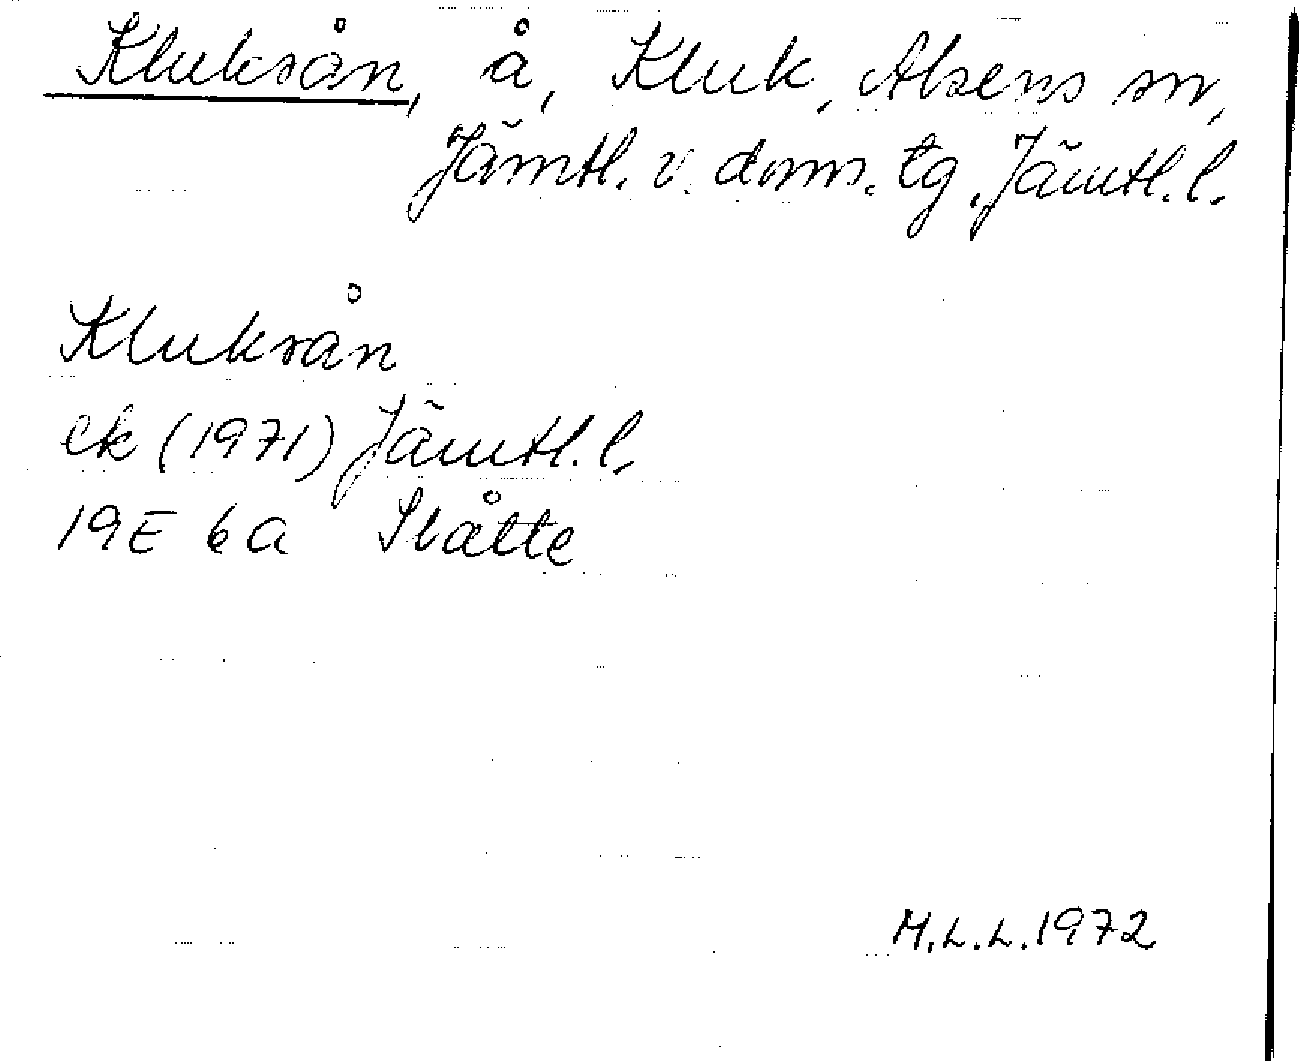 Kluksån, å, Kluk, Alsens sn,
Jämtl. v. doms. tg. Jämtl. l.
Kluksån
ek (1971) Jämtl. l.
19E 6a Slåtte
M.L.L. 1972